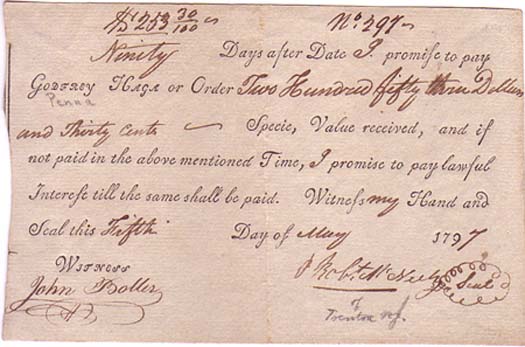 $253 30/100 No. 297
Ninity Days after Date I promise to pay
Godfrey Haga or Order Two Hundred fifty three Dollars
Penna
and Thirty Cents Specie, Value received, and if
not paid in the above mentioned Time, I promise to pay lawful
Interest till the same shall be paid. Witness my Hand and
Seal this Fifth Day of May 1797
Witness Robt. McNeely Seal
John Boller of
Trenton NJ.